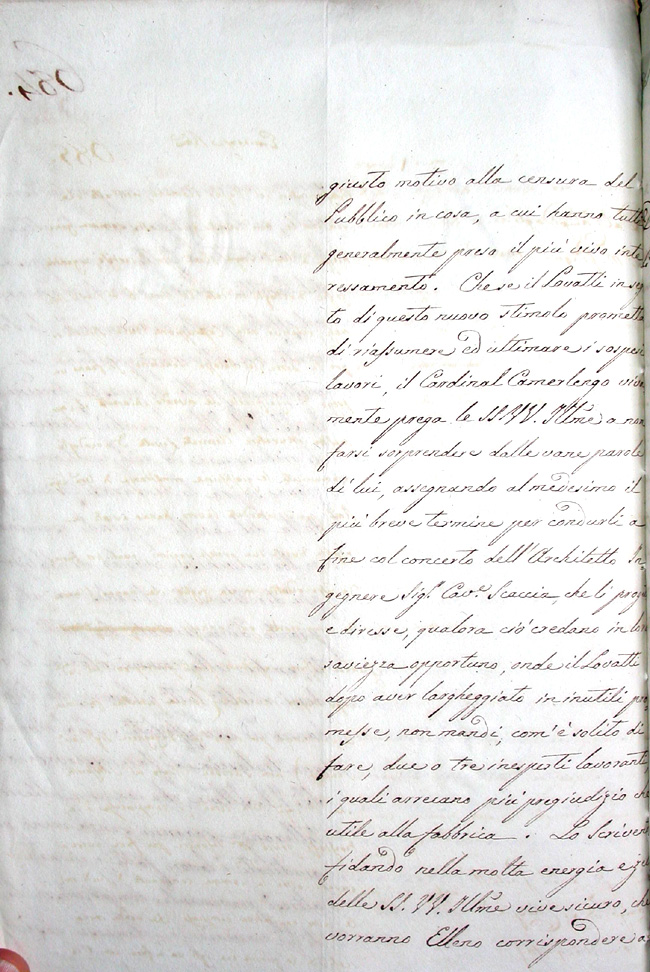 giusto motivo alla censura del
Pubblico in cosa, a cui hanno tutti
generalmente preso il più vivo inte
ressamento. Che se il Lovatti in seg
to di questo nuovo stimolo prometta
di riassumere ed ultimare i sospesi
lavori, il Cardinal Camerlengo viva
mente prega le SS. VV. Illme a non
farsi sorprendere dalle vane parole
di lui, assegnando al medesimo il
più breve termine per condurli a
fine col concerto dell'Architetto In
gegnere Sigr Cave Scaccia, che li
e diresse, qualora ciò credano in loro
saviezza opportuno, onde il Lovatti
dopo aver largheggiato in inutili pro
messe, non mandi, com'è solito di
fare, due o tre inesperti lavoranti,
i quali arrecano più pregiudizio che
utile alla fabbrica. Lo Scrivente
fidando nella molta energia e
delle SS. VV. Illme vive sicuro, che
vorranno Elleno corrispondere a